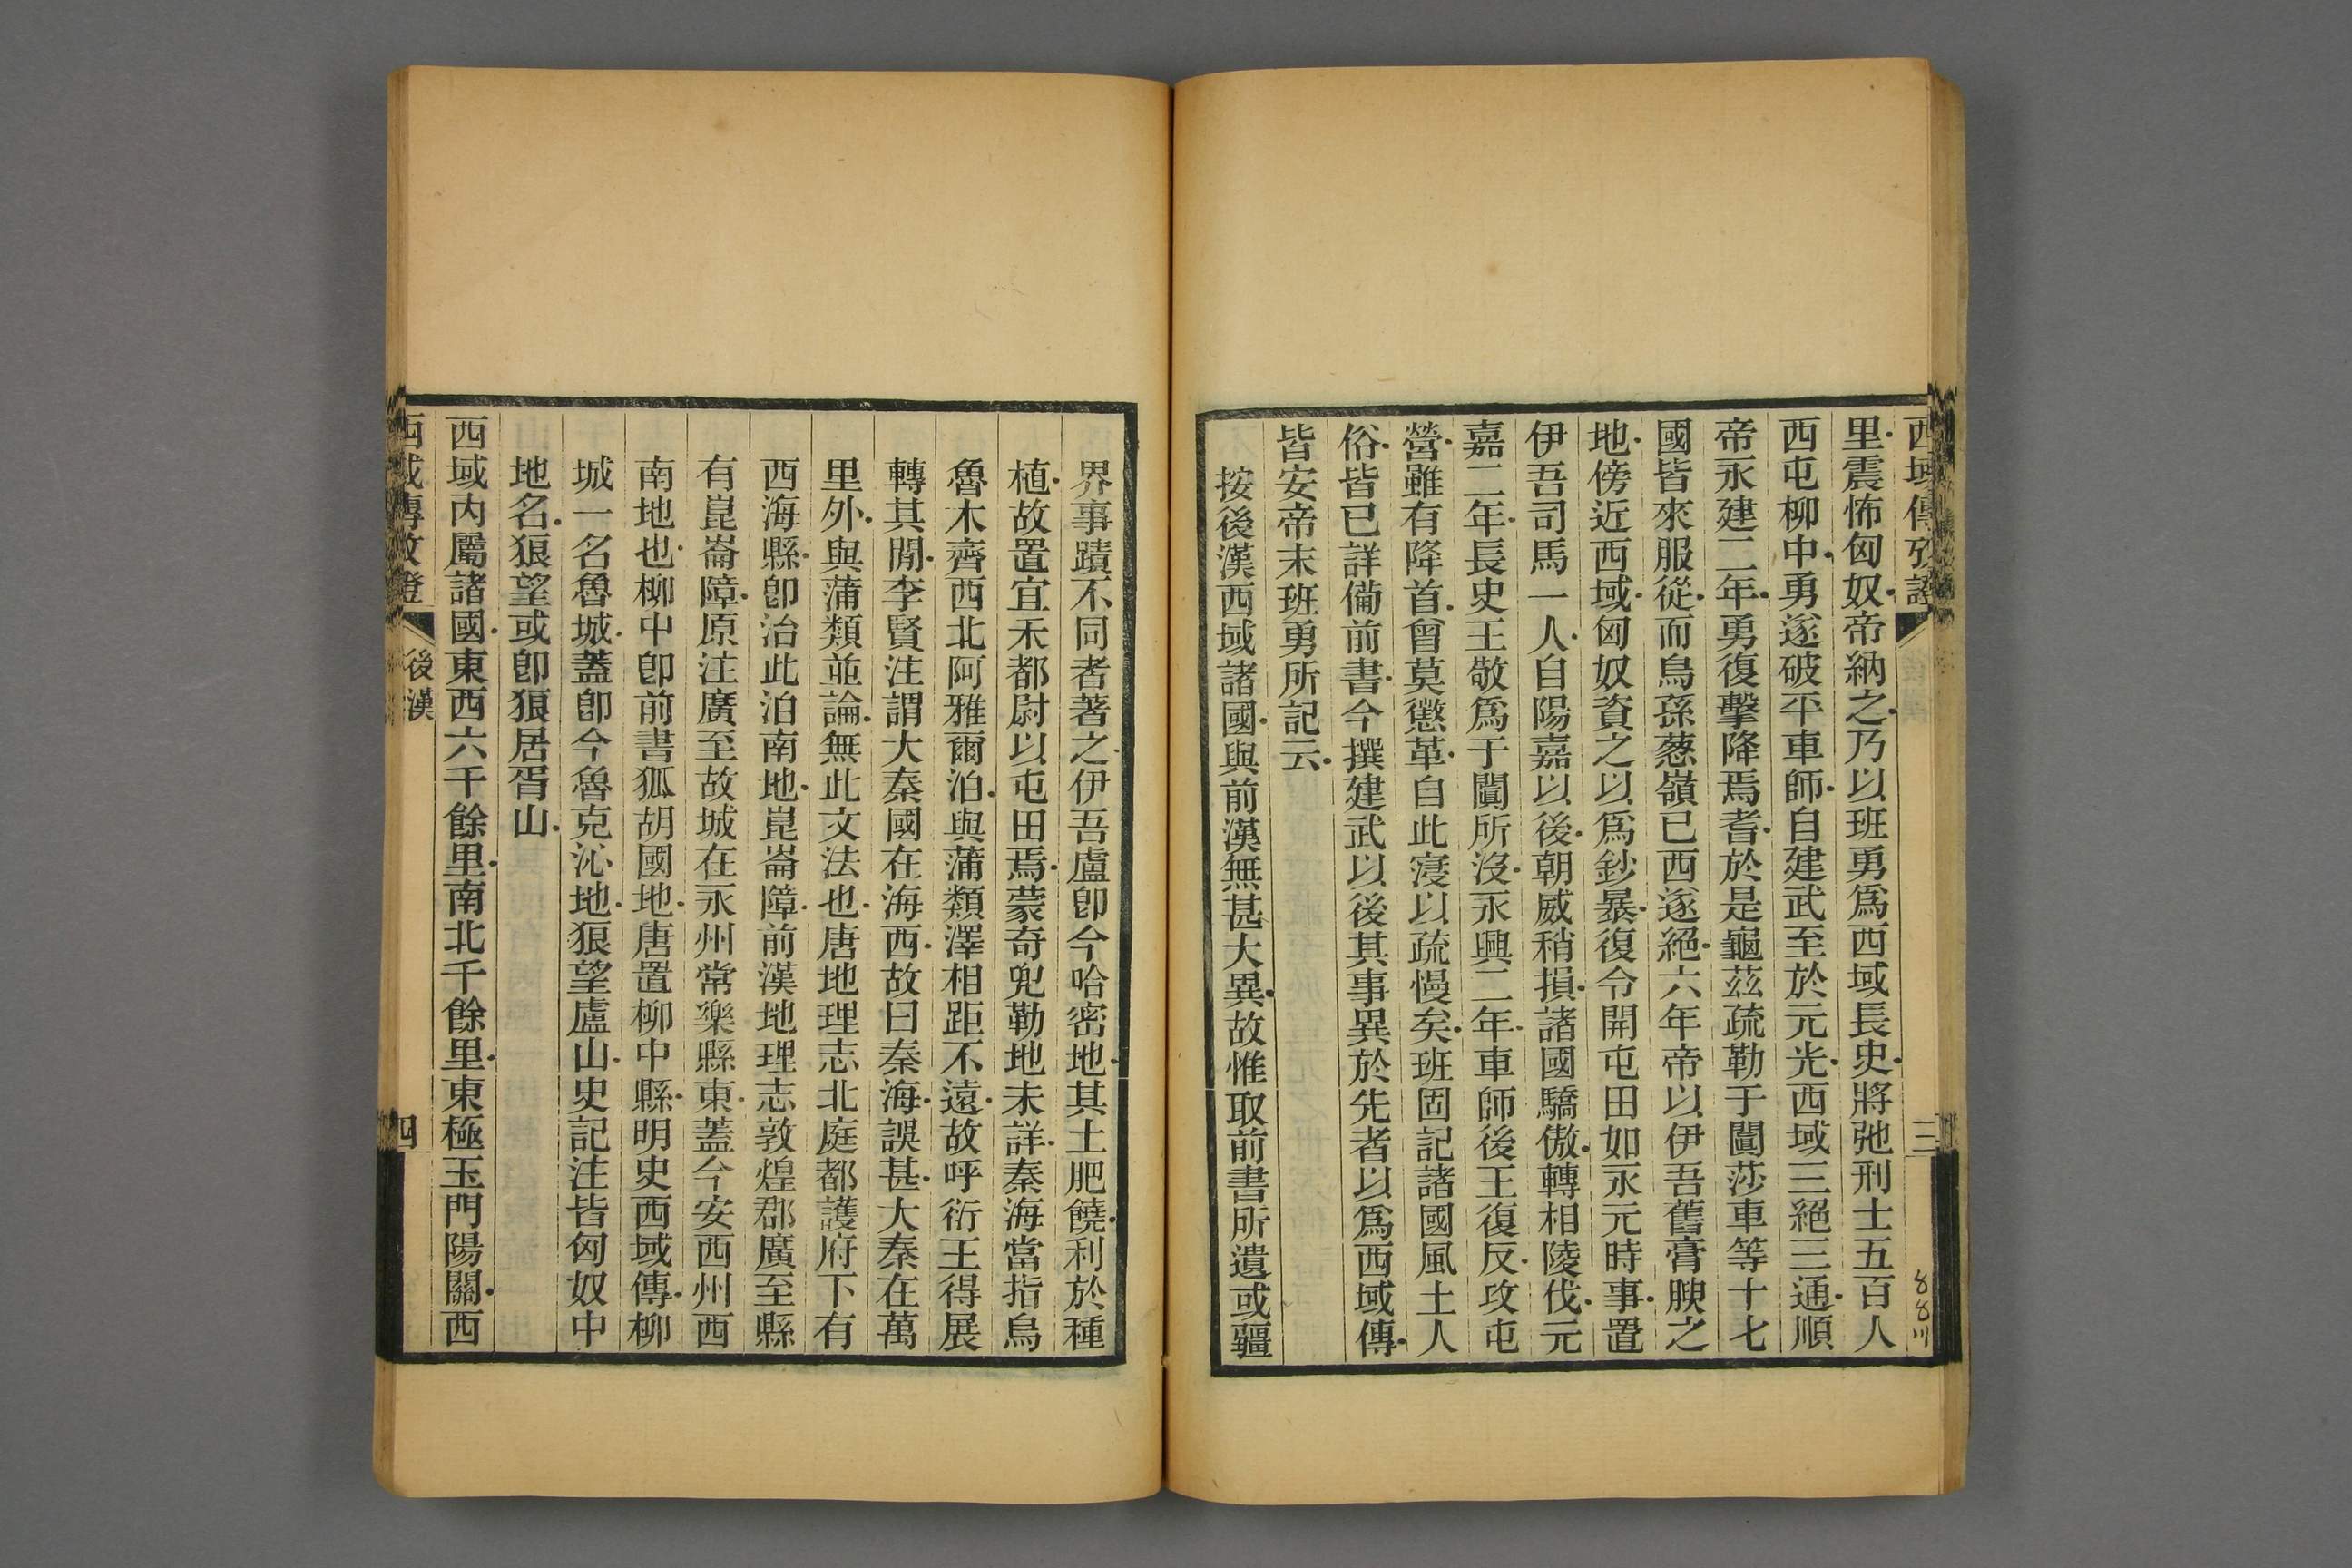 西域傳攷證
三
里震怖匈奴帝納之乃以班勇爲西域長史將弛刑士五百人
西屯柳中勇遂破平車師自建武至於元光西域三絕三通順
帝永建二年勇復擊降焉耆於是龜茲疏勒于闐莎車等十七
國皆來服從而烏孫葱嶺已西遂絕六年帝以伊吾舊膏腴之
地傍近西域匈奴資之以爲鈔暴復令開屯田如永元時事置
伊吾司馬一人自陽嘉以後朝威稍損諸國驕傲轉相陵伐元
嘉二年長史王敬爲于闐所沒永興二年車師後王復反攻屯
營雖有降首曾莫懲革自此寖以疏慢矣班固記諸國風土人
俗皆已詳備前書今撰建武以後其事異於先者以爲西域傳
皆安帝末班勇所記云
按後漢西域諸國與前漢無甚大異故惟取前書所遺或疆
界事蹟不同者著之伊吾盧卽今哈密地其土肥饒利於種
植故置宜禾都尉以屯田焉蒙奇兜勒地未詳秦海當指烏
魯木齊西北阿雅爾泊與蒲類澤相距不遠故呼衍王得展
轉其閒李賢注謂大秦國在海西故曰秦海誤甚大秦在萬
里外與蒲類並論無此文法也唐地理志北庭都護府下有
西海縣卽治此泊南地崑崙障前漢地理志敦煌郡廣至縣
有崑崙障原注廣至故城在永州常樂縣東蓋今安西州西
南地也柳中卽前書狐胡國地唐置柳中縣明史西域傳柳
城一名魯城蓋卽今魯克沁地狼望盧山史記注皆匈奴中
地名狼望或卽狼居胥山
西域內屬諸國東西六千餘里南北千餘里東極玉門陽關西
西域傳攷證
後漢
四